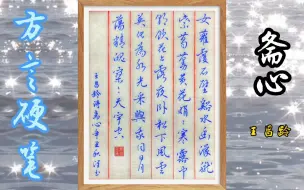 方言硬笔
女蘿覆石壁谿水幽濛朧
紫葛蔓黄花娟娟寒露中
朝飲花上露夜卧松下風雲
英化为水光采與我同日月
蕩精魄寥寥天宇空
王昌龄诗斋心
斋心
王昌龄